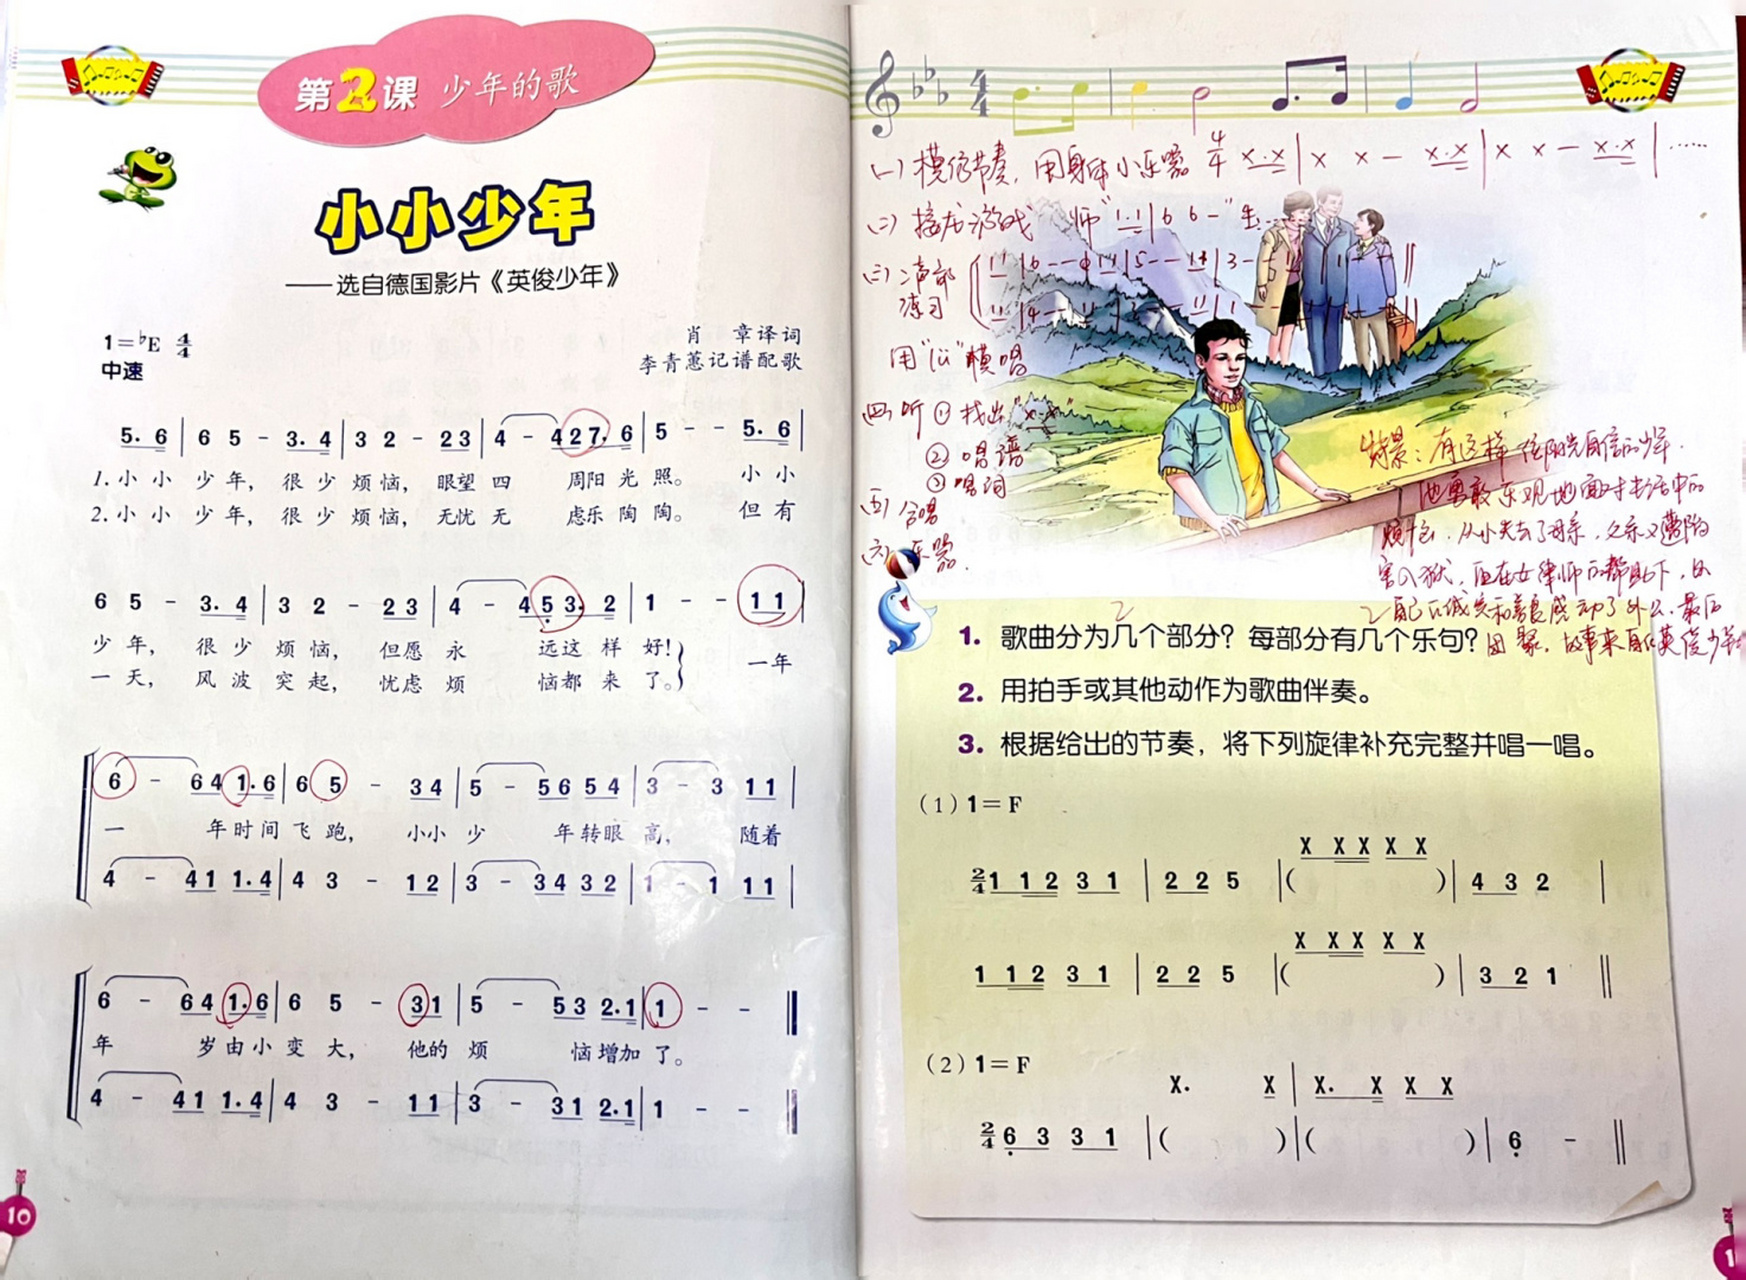 第2课 少年的歌
小小少年
——选自德国影片《英俊少年》
1=♭E 4/4
中速
肖 章译词
李青葸记谱配歌
5. 6 | 6 5 - 3. 4 | 3 2 - 2 3 | 4 - 4 2 7. 6 | 5 - - 5. 6 |
1. 小 小 少 年， 很 少 烦 恼， 眼望 四 周阳 光 照。 小 小
2. 小 小 少 年， 很 少 烦 恼， 无忧 无 虑乐 陶 陶。 但 有
6 5 - 3. 4 | 3 2 - 2 3 | 4 - 4 5 3. 2 | 1 - - 1 1 |
少 年， 很 少 烦 恼， 但愿 永 远这 样 好！ 一年
一 天， 风 波 突 起， 忧虑 烦 恼都 来 了。
6 - 6 4 1. 6 | 6 5 - 3 4 | 5 - 5 6 5 4 | 3 - 3 1 1 |
一 年时 间 飞 跑， 小小 少 年转眼 高， 随着
4 - 4 1 1. 4 | 4 3 - 1 2 | 3 - 3 4 3 2 | 1 - 1 1 1 |
6 - 6 4 1. 6 | 6 5 - 3 1 | 5 - 5 3 2. 1 | 1 - -
年 岁由 小 变 大， 他的 烦 恼增加 了。
4 - 4 1 1. 4 | 4 3 - 1 1 | 3 - 3 1 2. 1 | 1 - -
10
4/4
(一) 模仿节奏，用身体小乐器 4/4 x.x | x x - x.x | x x - x.x | ……
(二) 接龙游戏 师"1.1 | 6 6 -" 生
(三) 二声部
练习
用"lü"模唱
四、听 ① 找出"x.x"
② 唱谱
③ 唱词
(五) 合唱
(六) 乐器.
情景：有这样一位阳光自信的少年.
他勇敢乐观地面对生活中的
烦恼. 从小失去了母亲，父亲又遭陷
害入狱，但在女律师的帮助下，以
最后
团聚，故事来自《英俊少年》
1. 歌曲分为几个部分？每部分有几个乐句？
2. 用拍手或其他动作为歌曲伴奏。
3. 根据给出的节奏，将下列旋律补充完整并唱一唱。
（1）1= F
X X X X X
2/4 1 1 2 3 1 | 2 2 5 | ( ) | 4 3 2 |
X X X X X
1 1 2 3 1 | 2 2 5 | ( ) | 3 2 1 ||
（2）1= F
X. X | X. X X X
2/4 6 3 3 1 | ( ) | ( ) | 6 - ||
1